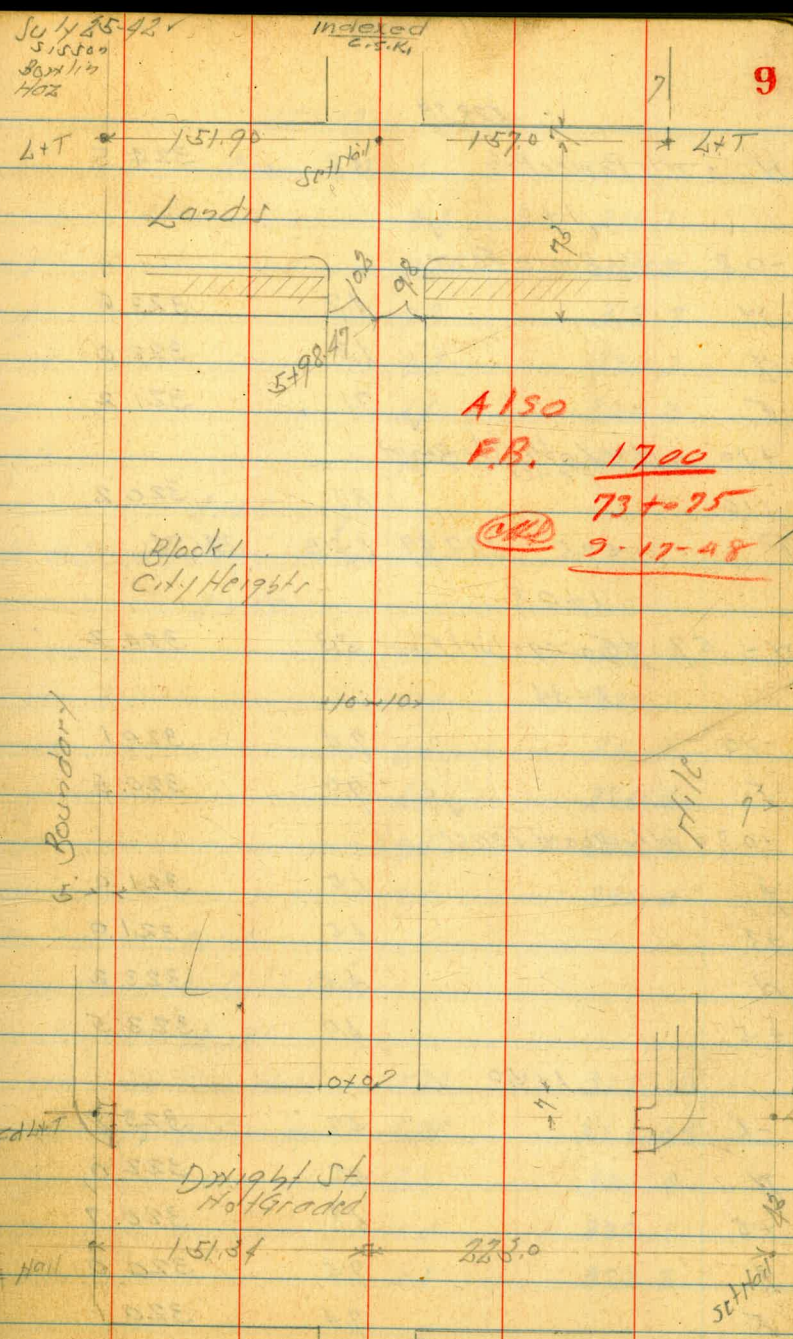 July 25-42
Sisson
Bartlin
Haz
Indexed
C.S.K.
9
7
L+T
151.90
Set Nail
157.0
7'
L+T
Landis
73'
10.2
9.8
5+98.47
Also
F.B. 1700
73 to 75
9-17-48
Block 1
City Heights
10 10
Boundary
0+00
7
L+T
Dwight St
Not Graded
151.34
223.0
Nail
Set Nail